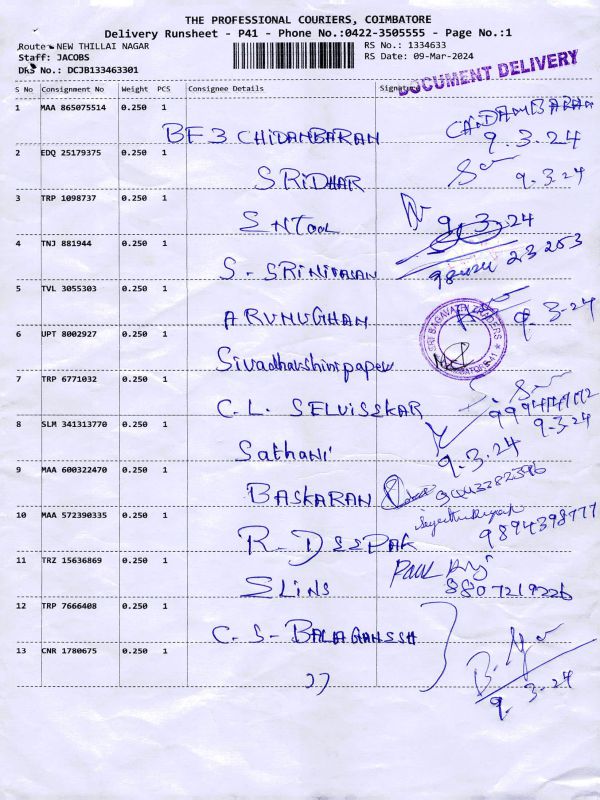 THE PROFESSIONAL COURIERS, COIMBATORE
Delivery Runsheet - P41 - Phone No.:0422-3505555 - Page No.:1
Route : NEW THILLAI NAGAR
RS No.: 1334633
Staff: JACOBS
RS Date: 09-Mar-2024
DRS No.: DCJB133463301
DOCUMENT DELIVERY
S No Consignment No Weight PCS Consignee Details Signature
1 MAA 865075514 0.250 1 BF 3 CHIDANBARAN CANDAMBARAN
9.3.24
2 EDQ 25179375 0.250 1 SRIDHAR 9.3.24
3 TRP 1098737 0.250 1 S N Tool 9.3.24
4 TNJ 881944 0.250 1 S - SRINIVASAN
5 TVL 3055303 0.250 1 ARUMUGHAM 9.3.24
6 UPT 8002927 0.250 1 Sivadharshini papers SRI BAGAVATHY TRADERS
7 TRP 6771032 0.250 1 C. L. SELVISSKAR
9.3.24
8 SLM 341313770 0.250 1 Sathani 9.3.24
9 MAA 600322470 0.250 1 BASKARAN 9043282396
10 MAA 572390335 0.250 1 R. DEEPAK 9894398777
11 TRZ 15636869 0.250 1 SLINS PAUL Raj
8807219226
12 TRP 7666408 0.250 1 C. S. BALAGANSSH
13 CNR 1780675 0.250 1 ״
9.3.24